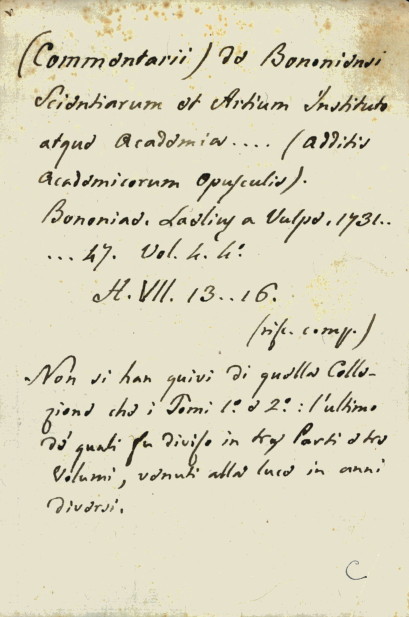 (Commentarii) de Bononiensi
Scientiarum et Artium Instituto
atque Academia .... (additis
Academicorum Opusculis).
Bononiae. Laelius a Vulpe. 1731..
... 47. Vol. 4. 4.º
H. VII. 13..16.
(risc. comp.)
Non si han quivi di quella Colle-
zione che i Tomi 1.º e 2.º: l'ultimo
de' quali fu diviso in tre Parti e tre
Volumi, venuti alla luce in anni
diversi.
C